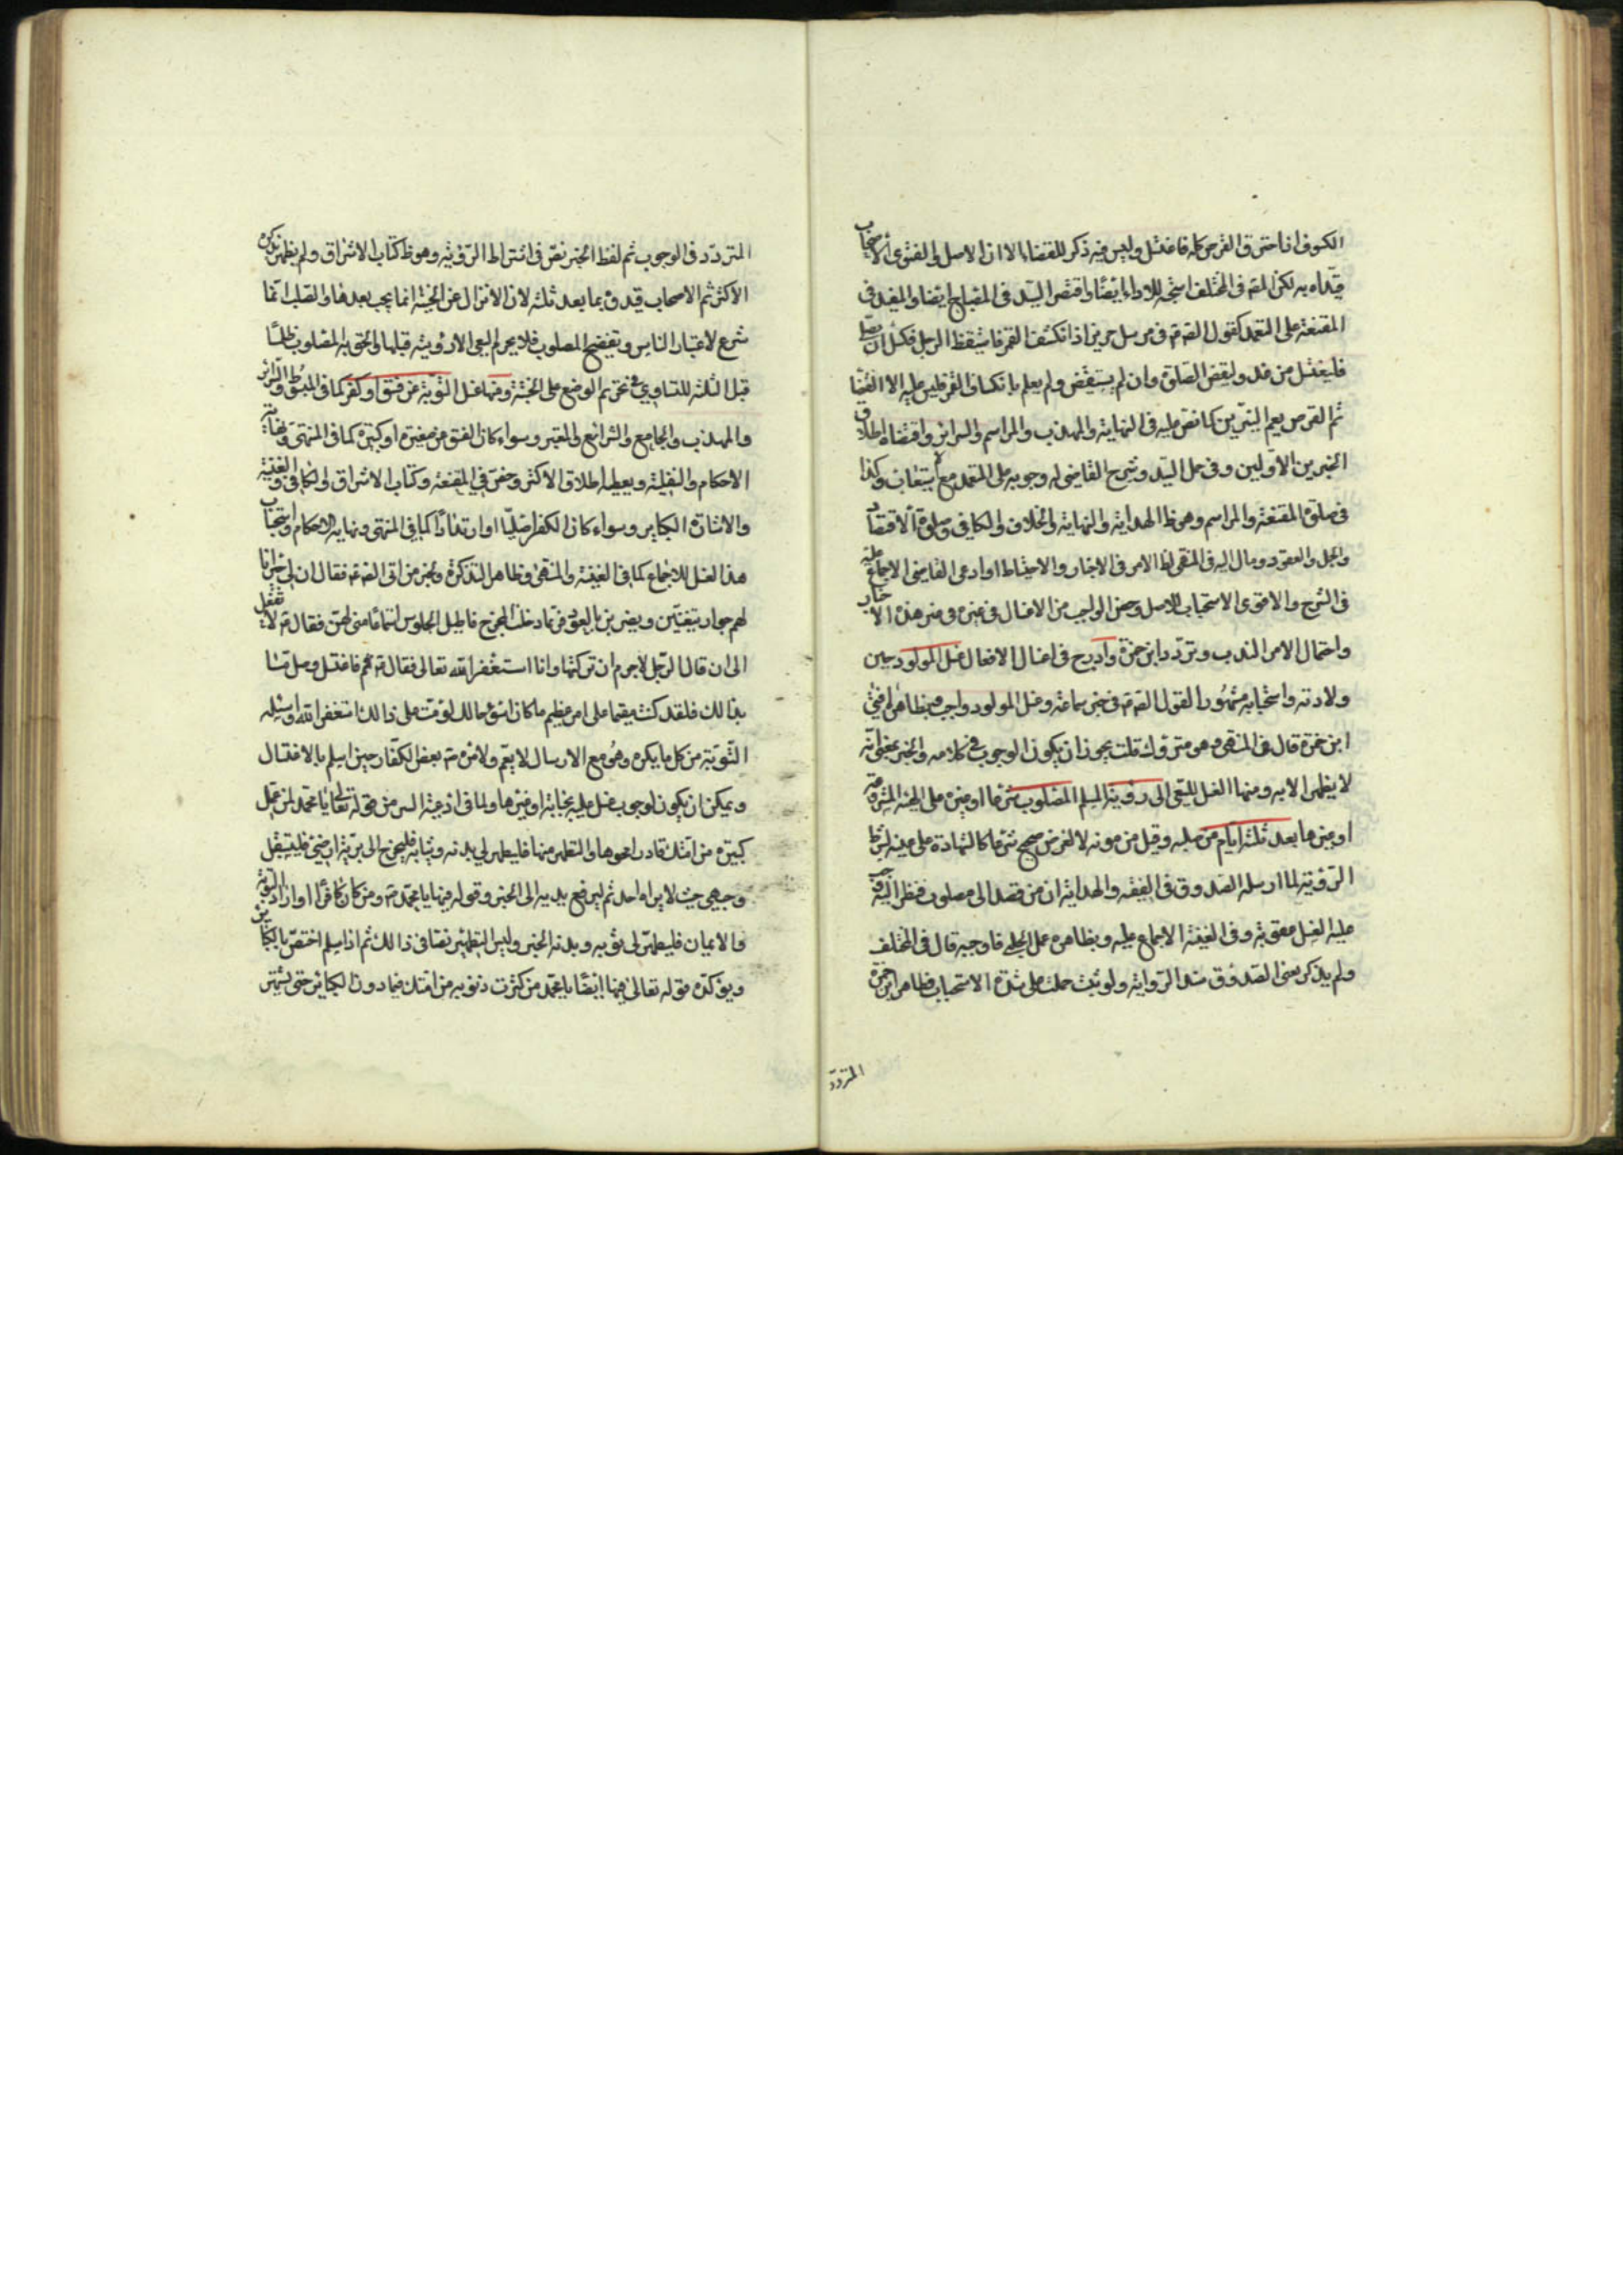 الكسوف اذا احترق القرص كله فاغتسل وليس فيه ذكر للقضاء الا ان الاصل والفتوى الاصحاب
قيداه به لكن المصّ في المختلف استحبه للاداء ايضًا واقتصر السيّد في المصباح ايضا والمفيد في
المقنعة على التعمد كقول الصادق في مرسل حريز اذا انكسف القمر فاستيقظ الرجل فكسل ان يصلي
فليغتسل من غد وليقض الصلوة وان لم يستيقظ ولم يعلم بانكساف القمر فليس عليه الا القضاء
ثم القرص يعم النيّرين كما نص عليه في النهاية والمهذب والمراسم والسرائر واقتضاه اطلاق
الخبرين الاوّلين وفي جمل السيّد وشرح القاضي له وجوبه على المتعمد مع استيعاب وكذا
في صلوة المقنعة والمراسم وهو ظ الهداية والنهاية والخلاف والكافي وصلوة الاقتصاد
والجمل والعقود ومال اليه في المنتهى لظ الامر في الاخبار والاحتياط وادعى القاضي الاجماع عليه
في الشرح والاقوى الاستحباب للاصل وحصر الواجب من الاغسال في غيره في غير هذه الاخبار
واحتمال الامر الندب وتردد ابن حمزة وادرج في اغسال الافعال غسل المولود حين
ولادته واستحبابه مشهور القول الصادق في خبر سماعة وغسل المولود واجب وبظاهره افتى
ابن حمزة قال في المنتهى وهو متروك قلت يجوز ان يكون الوجوب في كلامه والخبر بمعنى انه
لا يطهر الا به ومنها الغسل للسعي الى رؤية المسلم المصلوب شرعا او غيره على الهيئة المشروعة
او غيرها بعد ثلثة ايام من صلبه وقيل من موته لا لغرض صحيح شرعا كالشهادة على عينه بشرط
الرؤية لما ارسله الصدوق في الفقه والهداية ان من قصد الى مصلوب فنظر اليه وجب
عليه الغسل عقوبة وفي الغنية الاجماع عليه وبظاهره عمل الحلبي فاوجبه قال في المختلف
ولم يذكر يعني الصدوق سند الرواية ولو ثبت حملت على شدة الاستحباب وظاهر ابن حمزة
المتردد
المتردّد في الوجوب ثم لفظ الخبر نصّ في اشتراط الرؤية وهو ظ كتاب الاشراق ولم يذكره
الاكثر ثم الاصحاب قيدوه بما بعد ثلثة لان الانزال عن الخشبة انما يجب بعدها والصلب انما
شرع لاعتبار الناس وتفضيح المصلوب فلا يحرم السعي الا رؤيته قبلها والحق به المصلوب ظلمًا
قبل الثلثة للتساوي في تحريم الوضع على الخشبة ومنها غسل التوبة عن فسق او كفر كما في المبسوط والسرائر
والمهذب والجامع والشرائع والمعتبر وسواء كان الفسق عن صغيرة او كبيرة كما في المنتهى ونهاية
الاحكام والنفلية ويعطيه اطلاق الاكثر وخص في المقنعة وكتاب الاشراق والكافي والغنية
والاشارة الكبائر وسواء كان الكفر اصليّا او ارتدادًا كما في المنتهى ونهاية الاحكام واستحباب
هذا الغسل للاجماع كما في الغنية والمنتهى وظاهر التذكرة ولخبر من اتى الصادق فقال ان لي جيرانا
لهم جوار يتغنّين ويضربن بالعود فربما دخلت المخرج فاطيل الجلوس استماعًا مني لهن فقال لا تفعل
الى ان قال الرجل لا جرم اني تركتها وانا استغفر الله تعالى فقال قم فاغتسل وصل ما بدا
لك فلقد كنت مقيما على امر عظيم ما كان اسوء حالك لو مت على ذالك استغفر الله واسئله
التّوبة من كل ما يكره وهو مع الارسال لا يعم ولامره بعض الكفّار حين اسلم بالاغتسال
ويمكن ان يكون لوجوب غسل عليه بجنابة او غيرها ولما في ادعية السر من قوله تعالى يا محمد لمن عمل
كبيرة من امتك فاراد محوها والتطهر منها فليطهر لي بدنه وثيابه فليخرج الى برية ارضي فليستقبل
وجهي حيث لا يراه احد ثم ليرفع يديه الى الخبر وقوله فيها يا محمد ومن كان كافرًا واراد التوبة
والايمان فليطهر لي ثوبه وبدنه الخبر وليس التطهير نصا في ذالك ثم اذا سلم اختص بالكبائر
ويؤكده قوله تعالى فيها ايضًا يا محمد من كثرت ذنوبه من امتك فيما دون الكبائر حتى يشتهر